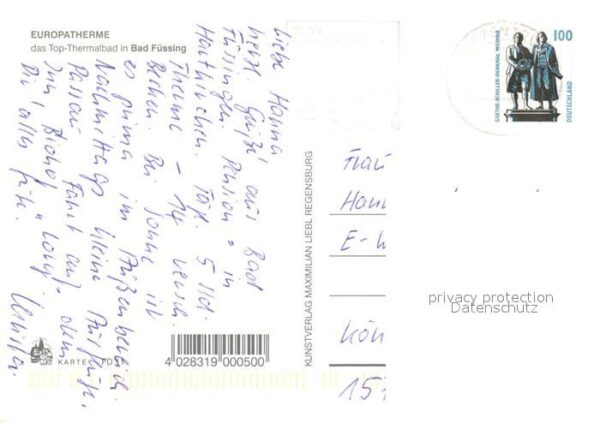 EUROPATHERME
das Top-Thermalbad in Bad Füssing
Liebe Hanna
herzl. Grüße aus Bad
Füssingen. Pension in
Hartkirchen. Tägl. 5 Std.
Therme - 14 versch.
Becken. Bei Sonne ist
es prima im Außenbereich.
Nachmittags kleine Ausflüge.
Passau Fahrt auf dem
Inn!
Dir alles Gute.
KARTE POST
4 028319 000500
KUNSTVERLAG MAXIMILIAN LIEBL REGENSBURG
GOETHE-SCHILLER-DENKMAL WEIMAR
100
DEUTSCHLAND
Frau
Han
E-
Kön
15
privacy protection
Datenschutz